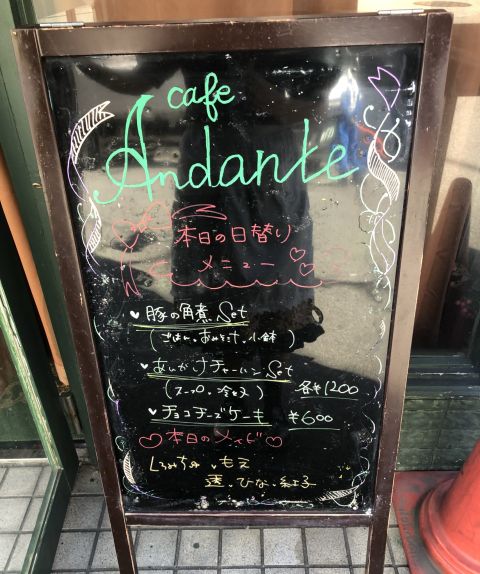 cafe
Andante
本日の日替り
メニュー
♥豚の角煮Set
(ごはん、おみそ汁、小鉢)
♥あんかけチャーハンSet
(スープ、冷とう) 各¥1200
♥チョコチーズケーキ ¥600
♡本日のメイド♡
くるみちゃ、もえ
透、ひな、紅子